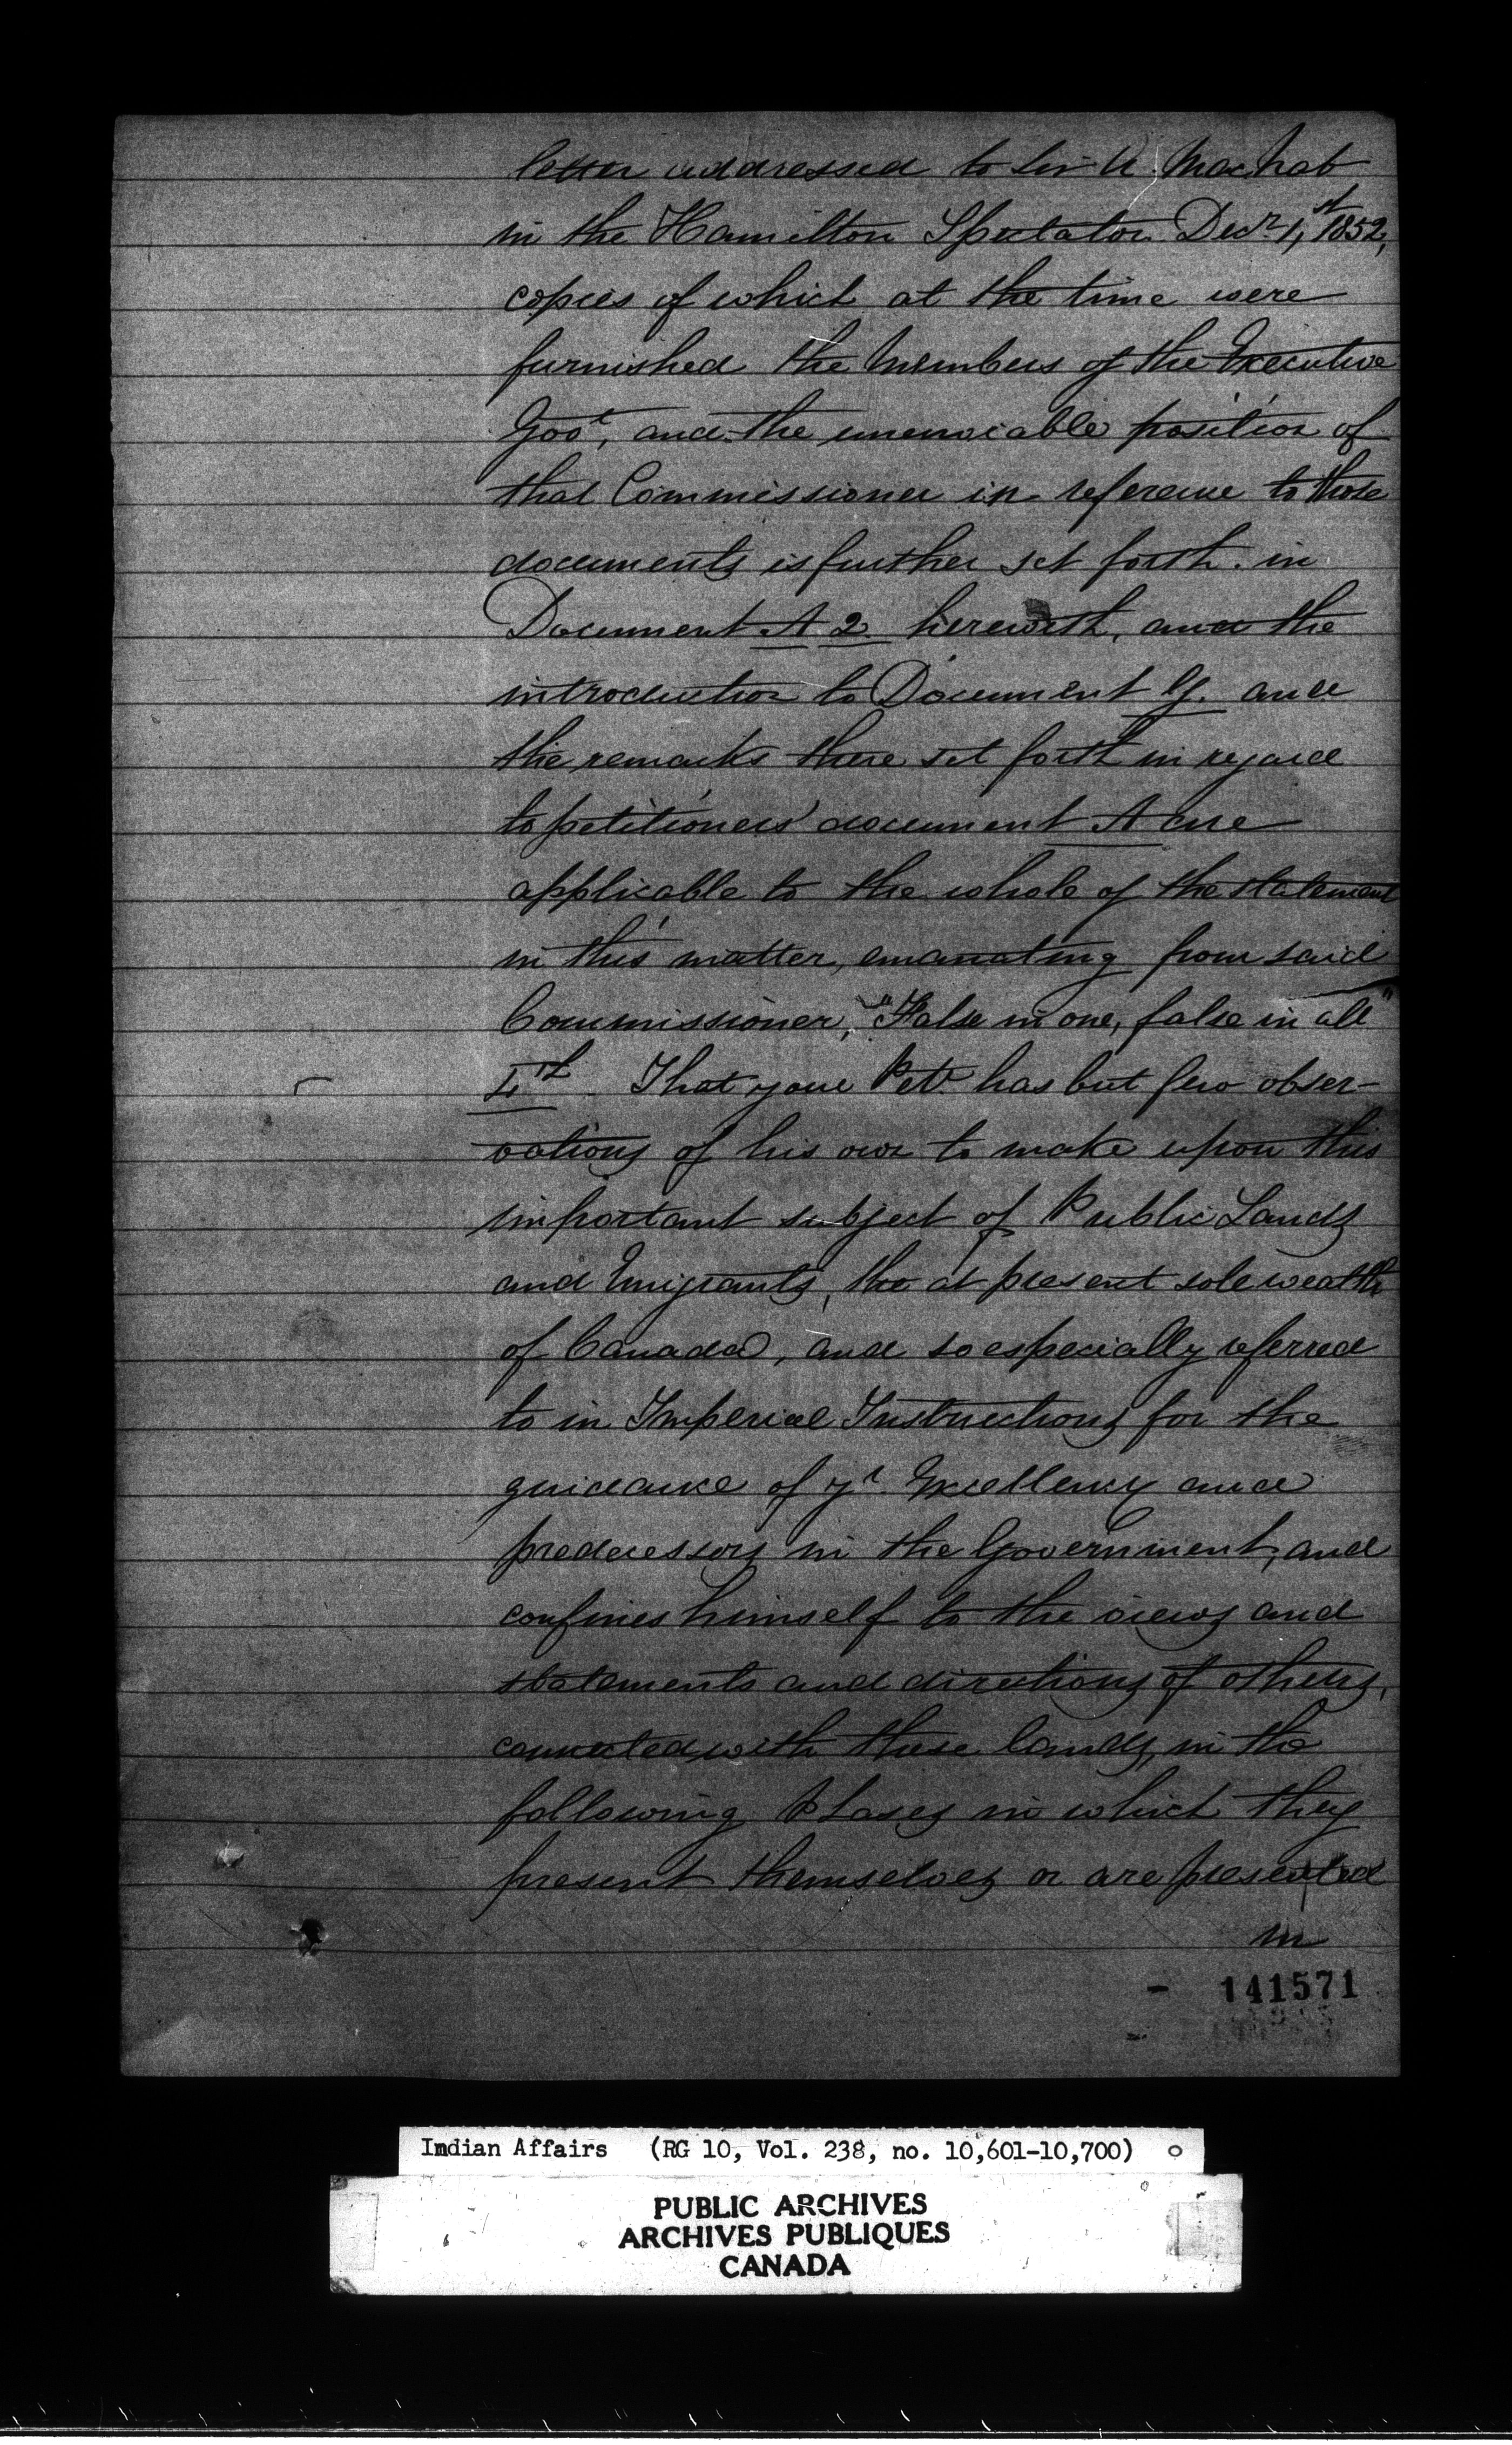 letter addressed to Sir A. MacNab
in the Hamilton Spectator Decr. 1st, 1852,
copies of which at the time were
furnished the Members of the Executive
Govt, and the position of
that Commissioner in reference to those
documents is further set forth in
Document A 2 herewith, and the
introduction to Document G. and
the remarks there set forth in regard
to petitioners' document A are
applicable to the whole of the statement
in this matter, emanating from said
Commissioner, "False in one, false in all"
4th That your Petr. has but few obser-
vations of his own to make upon this
important subject of Public Lands
and Emigrants, the at present sole wealth
of Canada, and so especially referred
to in Imperial Instructions for the
guidance of yr. Excellency and
predecessors in the Government, and
confines himself to the views and
statements and directions of others,
connected with these lands, in the
following phases in which they
present themselves or are presented
in
- 141571
Indian Affairs (RG 10, Vol. 238, no. 10,601-10,700)
PUBLIC ARCHIVES
ARCHIVES PUBLIQUES
CANADA